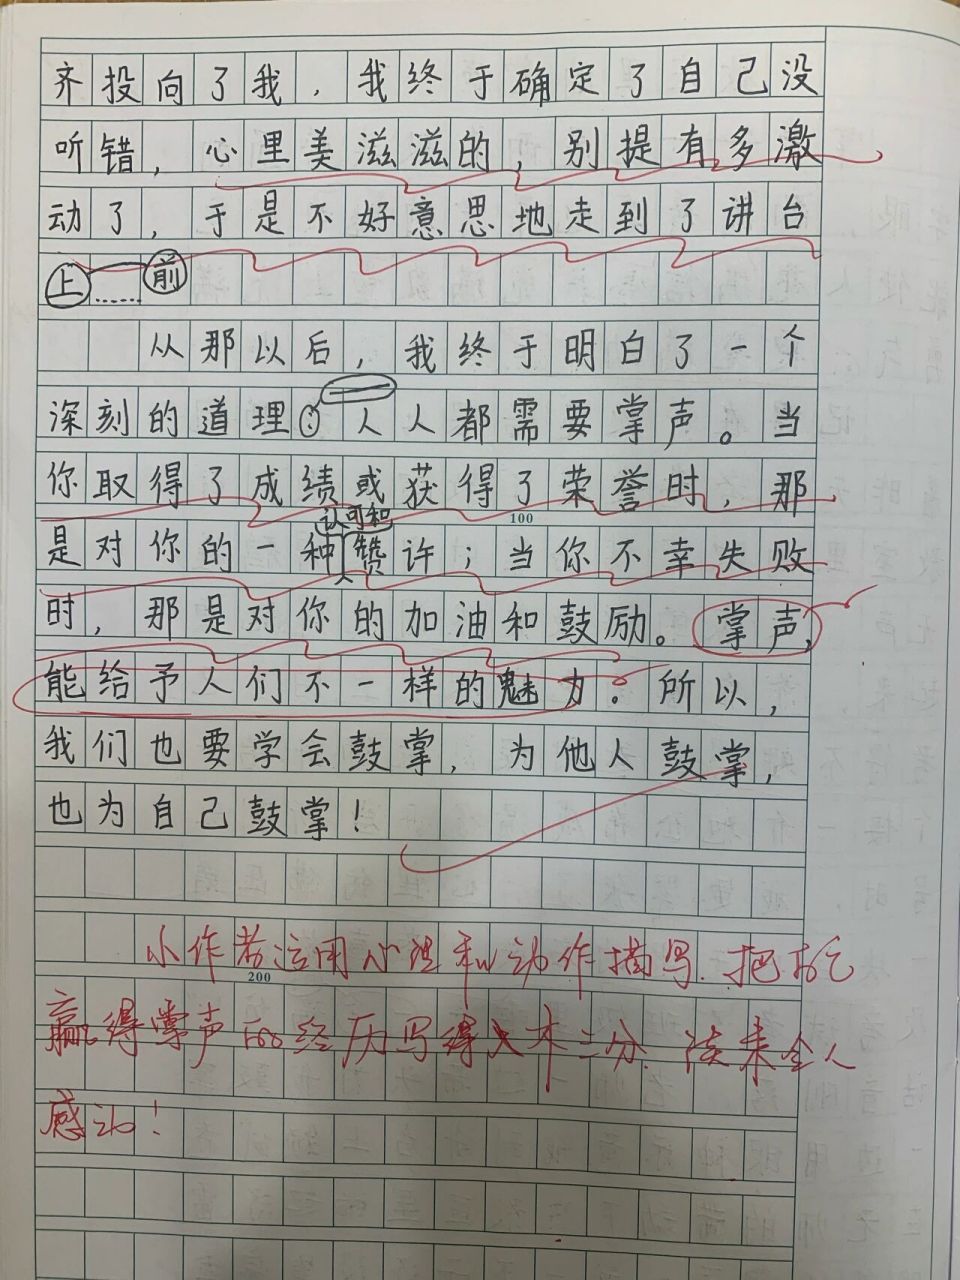 齐投向了我，我终于确定了自己没
听错，心里美滋滋的，别提有多激
动了，于是不好意思地走到了讲台
上……前
从那以后，我终于明白了一个
深刻的道理：人人都需要掌声。当
你取得了成绩或获得了荣誉时，那
认可和
100
是对你的一种赞许；当你不幸失败
时，那是对你的加油和鼓励。掌声，
能给予人们不一样的魅力。所以，
我们也要学会鼓掌，为他人鼓掌，
也为自己鼓掌！
小作者运用心理和动作描写，把自己
200
赢得掌声的经历写得入木三分，读来令人
感动！